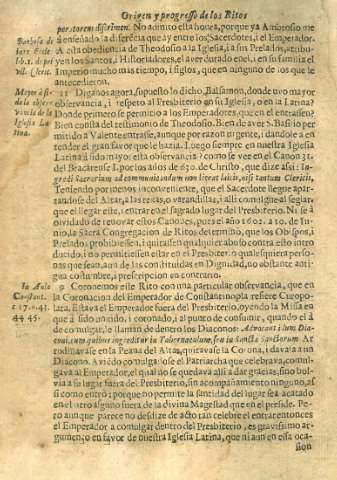 Origen y progresso de los Ritos
portorem discrimen. No admitió esta honra, porque ya Ambrosio me
à enseñado la diferecia que ay entre los Sacerdotes, i el Emperador.
A esta obediencia de Theodosio a la Iglesia, i a sus Prelados, atribu-
yen los Santos, i Historiadores, el aver durado en el, i en su familia el
Imperio mucho mas tiempo, i siglos, que en ninguno de los que le
antecedieron.
Diganos agora, supuesto lo dicho, Balsamon, donde uvo mayor
observancia, i respeto al Presbiterio en su Iglesia, o en la Latina?
Donde primero se permitio a los Emperadores, que en el entrasen?
Bien consta del testimonio de Theodosio. Si en el de aver S. Basilio per
mitido a Valente entrase, aunque por razon urgente, i dandole a en-
tender el gran favor que le hazia. Luego siempre en nuestra Iglesia
Latina à sido mayor esta observancia? como se vee en el Canon 31.
del Bracarense I. por los años de 630. de Christo, que dize assi: Ingre-
di Sacrarium ad communicandum non liceat laicis, nisi tantum Clericis,
Teniendo por menos inconveniente, que el Sacerdote llegue apar-
tandose del Altar, a las rexas, o varandillas, i alli comulgue al seglar
que el llegar este, i entrar en el sagrado lugar del Presbiterio. Ni se à
olvidado de renovar estos Canones, pues el año 1602. a 10. de Iu-
nio, la Sacra Congregacion de Ritos determinò, que los Obispos, i
Prelados prohibiesen, i quitasen qualquier abuso contra esto intro
ducido, i no permitiesen estar en el Presbiterio, a qualesquiera perso
nas que sean, aun de las constituidas en Dignidad, no obstante anti-
gua costumbre, i prescripcion en contrario.
9 Coronemos este Rito con una particular observancia, que en
la Coronacion del Emperador de Constantinopla refiere Curopo-
lata, Estava el Emperador fuera del Presbiterio, oyendo la Missa en
que à sido ungido, i coronado, i al punto de consumir, quando el à
de comulgar, le llaman de dentro los Diaconos: Advocant illum Dia-
coni, cum quibus ingreditur in Tabernaculum, seu in Sancta Sanctorum. Ar
rodillavase en la Peana del Altar, quitavase la Corona, i davala a un
Diacono. Aviedo comulgadose el Patriarcha que celebrava, comulga-
va al Emperador, el qual no se quedava alli a dar gracias, sino bol-
via a su lugar fuera del Presbiterio, sin acompañamiento ninguno, af
si como entrò; porque no permite la santidad del lugar sea acatado
en el otro alguno fuera de la divina Magestad que en el preside. Pe-
ro aunque parece no desdize de acto tan celebre el entrar entonces
el Emperador a comulgar dentro del Presbiterio, es gravissimo ar-
gumento en favor de nuestra Iglesia Latina, que ni aun en esta oca-
sion
Mayor à sido
de la obser-
vancia de la
Iglesia La-
tina.
In Aula
Constant.
c 17. n. 41.
44 45.